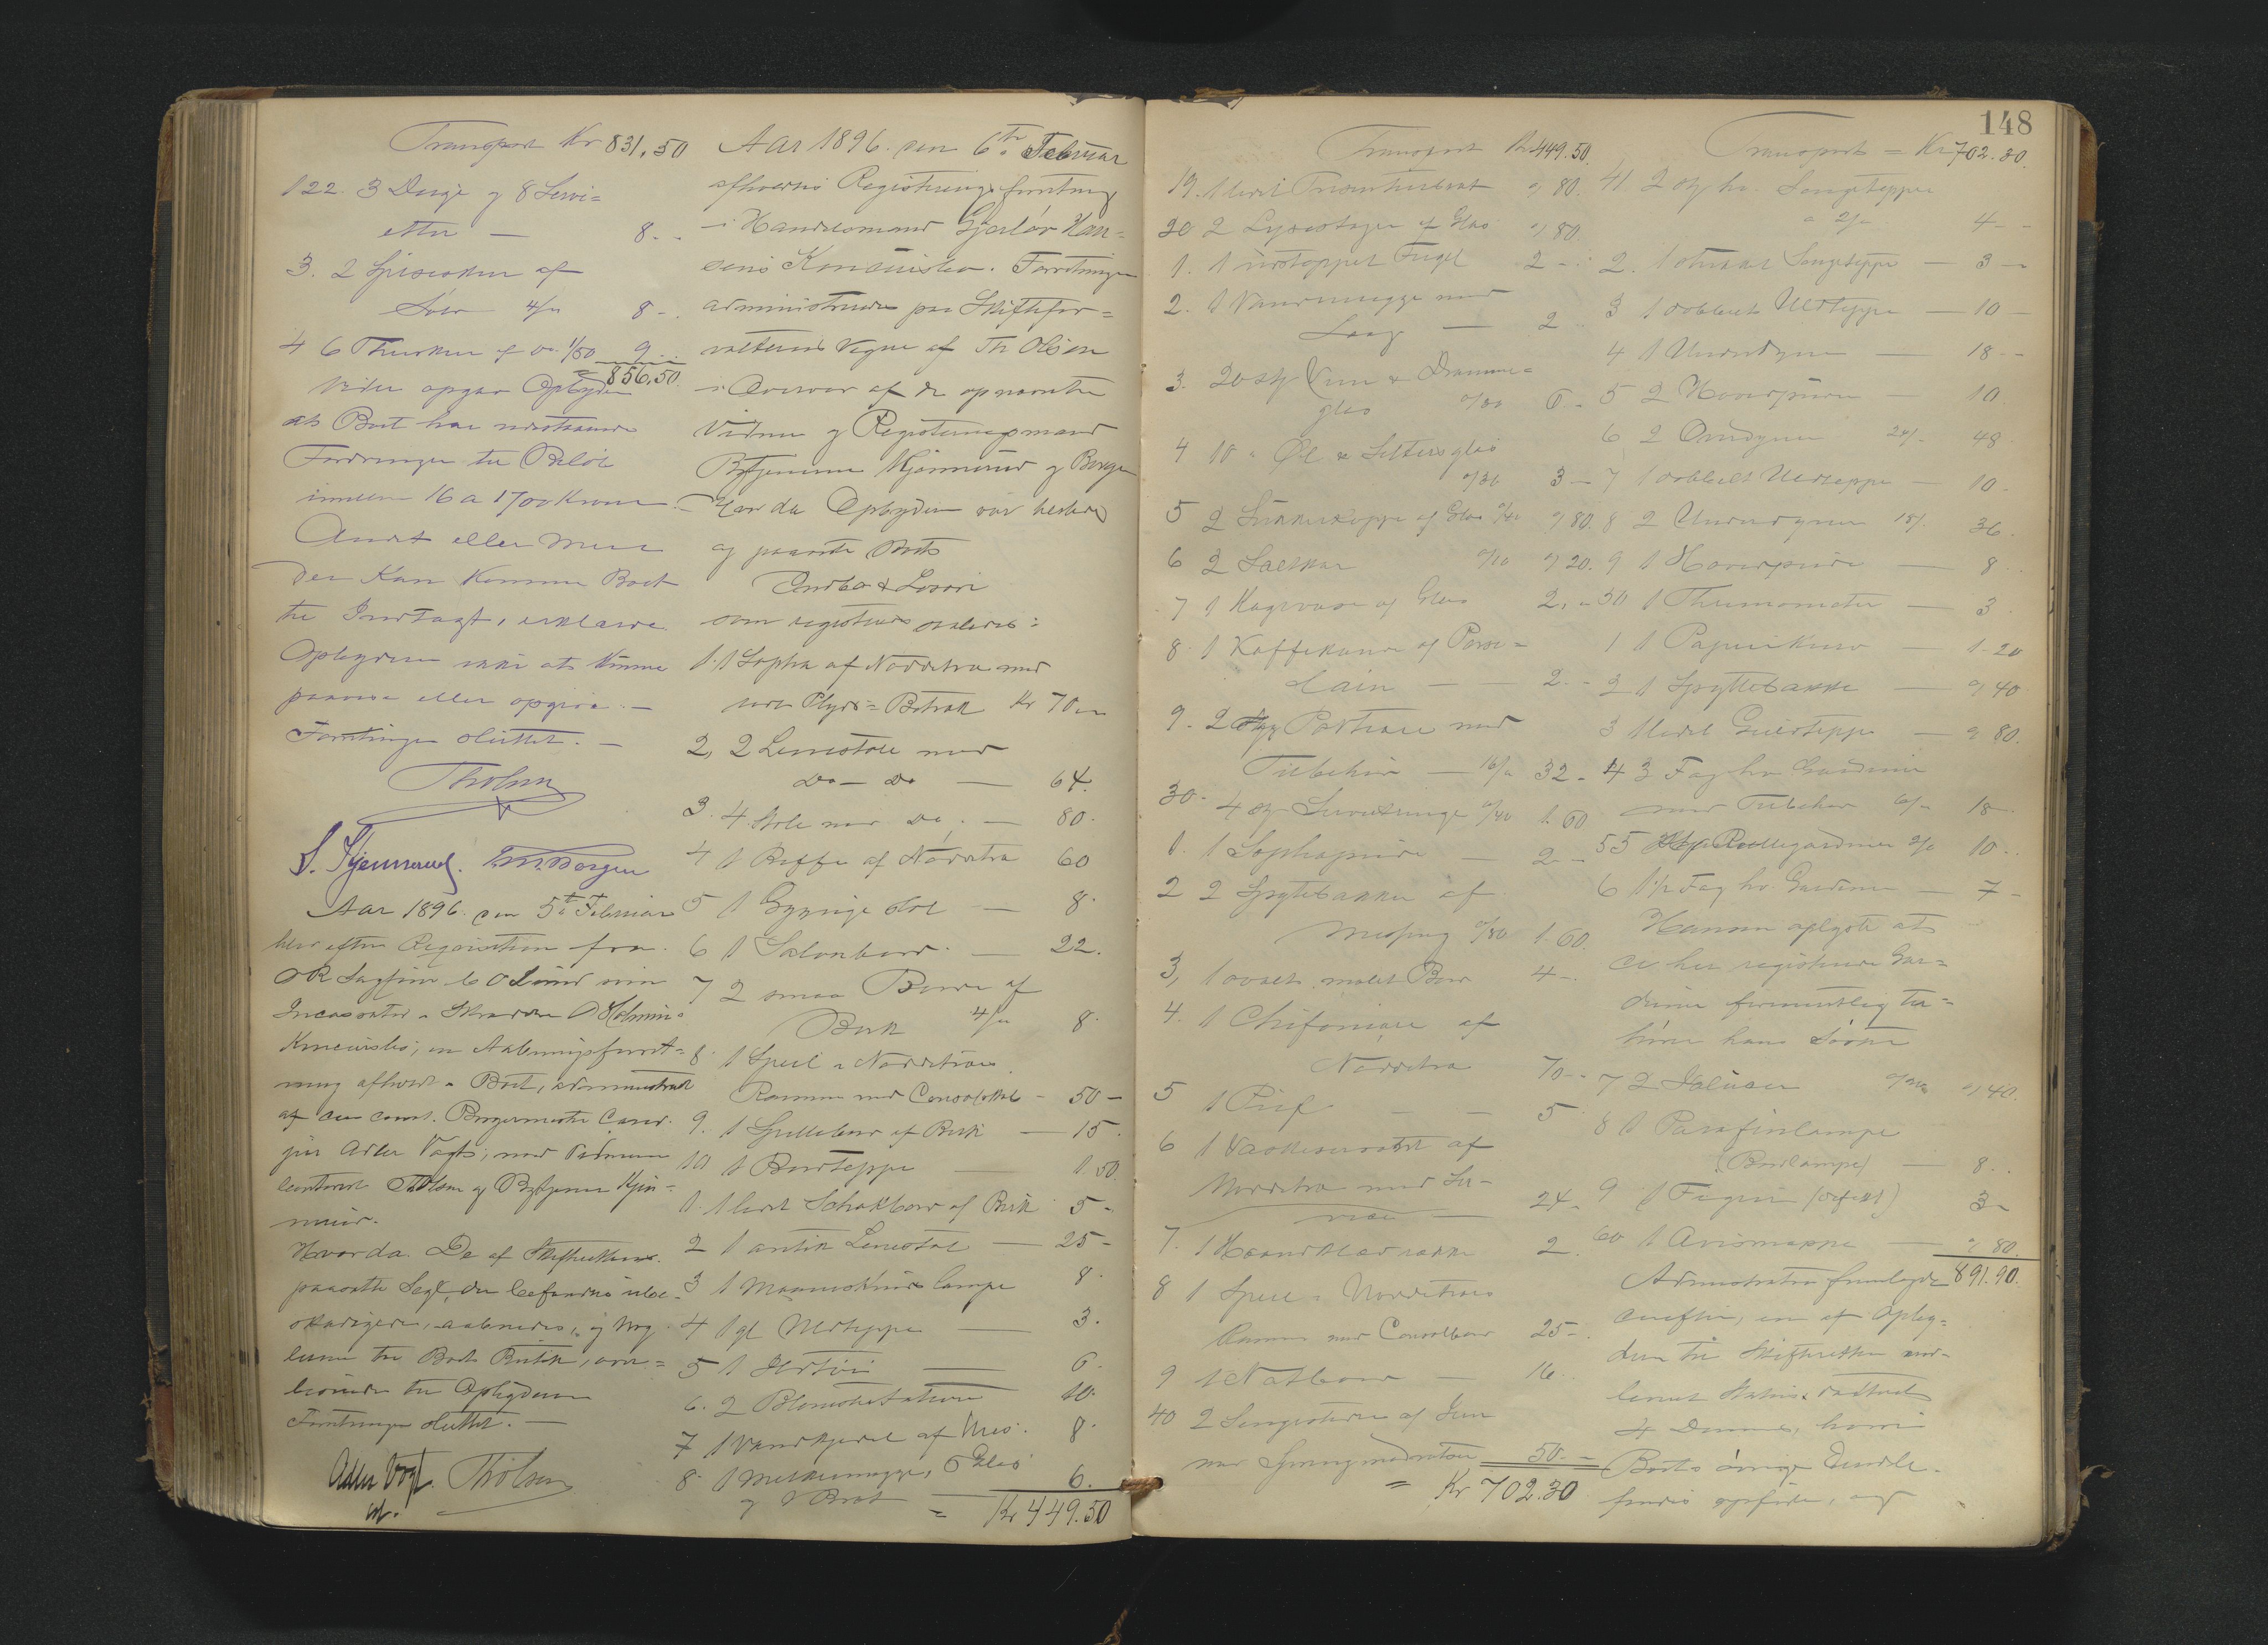 Transport Kr 831,50
122. 3 Duge og 8 Servi=
etter — 8 -
3. 2 Spiseskeer af
Sølv 4/- 8 -
4 6 Theskeer af do. 1/50 9 -
= 856,50.
Videre opgav Opbyderen
at Boet har udestaaende
Fordringer til Beløb
imellem 16 a 1700 Kroner. —
Andet eller mere
der kan komme Boet
til Indtægt, erklærede
Opbyderen ikke at kunne
paavise eller opgive. —
Forretningen sluttet. —
ThOlsen
S. Hjemmerud. Borgen
Aar 1896. den 5te Februar
blev efter Reqvisition fra
OR Sagfører
Incassator
Konkursbo; en Aabningsforret=
ning afholdt i Boet, administreret
af den const. Borgermester Cand.
jur Adler Vogt; med Vidnerne
Contorist ThOlsen og Bytjener
Hvorda De af Skifteretten
paasatte Segl, der befandtes ube=
skadigede, aabnedes, og Nøg
lerne til Boets Butik, over=
leverede til Opbyderen
Forretningen sluttet. —
Adler Vogt ThOlsen
cst.
Aar 1896. den 6te Februar
afholdtes Registreringsforretning
i Handelsmand Gjerløv Han=
sens Konkursbo. Forretningen
administreredes paa Skiftefor=
valterens Vegne af Th Olsen
i Overvær af de opnævnte
Vidner og Registreringsmænd
Bytjenerne og Borgen
Hvor da Opbyderen var tilstede
og paaviste Boets
Indbo & Løsøre
som registreredes saaledes:
1. 1 Sopha af Nøddetræ med
rødt Plyds=Betræk Kr 70 -
2, 2 Lænestole med
Do — Do — 64.
3. 4 Stole med Do. — 80.
4 1 Buffe af Nøddetræ 60
5 1 Gyngestol — 8.
6 1 Salonbord — 22.
7 2 smaa Borde af
Birk 4/- 8.
8. 1 Speil i Nøddetræes
Ramme med Consol — 50 —
9. 1 Spillebord af Birk — 15.
10 1 Bordteppe — 1.50.
1. 1 lidet Schakbord af Birk 5 -
2 1 antik Lænestol — 25 -
3 1 Maaneskinslampe 8.
4 1 gl Uldteppe — 3.
5 1 Ildtøi — 6.
6. 2 Blomsterstativer 10.
7 1 Vandkjedel af Mes. 8.
8. 1 Melkemugge, 6 Glas
og 1 Bret 6.
= Kr 449.50
148
Transport Kr 449.50.
19. 1 lidet " 80.
20 2 Lysestager af Glas " 80
1. 1 udstoppet Fugl 2 -
2. 1 Vandmugge med
Laag — 2
3. 20 stk Vin & Dramme=
glas 0/30 6 -
4 10 " Øl & Seltersglas
0/30 3 —
5 2 Sukkerkopper af Glas 0/40 " 80.
6 2 Saltkar 0/10 " 20.
7 1 Kagevase af Glas 2. -
8. 1 Kaffekande af Porce=
lain — — 2. -
9. 2 Portierer med
Tilbehør — 16/- 32 -
30. 4 stk Servietringe 0/40 1.60
1. 1 Sophapude — 2 —
2 2 Spyttebakker af
Messing 0/80 1.60.
3, 1 ovalt malet Bord 4 -
4. 1 Chifoniere af
Nøddetræ 70 -
5 1 Puf — — 5
6 1 Vaskeservant af
Nøddetræ med Ser-
vice — 24 -
7. 1 Haandklædrække 2.
8 1 Speil i Nøddetræes
Ramme med Consolbord 25 -
9 1 Natbord — 16.
40 2 Sengesteder af Jern
med Springmadratser 50. -
= Kr 702.30
Transport = Kr 702.30.
41. 2 stk hv. Sengetepper
a 2/- 4 -
2. 1 strikket Sengeteppe — 3 -
3 1 dobbelt Uldteppe — 10 -
4 1 Underdyne — 18 -
5 2 Hovedpuder — 10
6 2 Overdyner 24/- 48
7 1 dobbelt Uldteppe — 10 -
8 2 Underdyner 18/- 36.
9 1 Hovedpude — 8 -
50 1 Thermometer — 3
1 1 Papirkurv — 1.20
2 1 Spyttebakke — " 40
3 1 lidet Gulvteppe — " 80.
4 3 Fag hv Gardiner
med Tilbehør 6/- 18 —
5 5 Rullegardiner 2/- 10 -
6 1 1/2 Fag hv. Gardiner — 7 -
Hansen oplyste at
de her registrerede Gar=
diner formentlig til=
hører hans Søster
7 2 " 40.
8 1 Parafinlampe
(Bordlampe) — 8 -
9 1 Figur (defekt) 3 -
60 1 Avismappe — " 80.
891.90.
Administrator fremlagde
derefter, en af Opby=
deren til Skifteretten ind-
leveret Status, dateret
4 Dennes, hvori
Boets øvrige Eiendele
findes opført, og